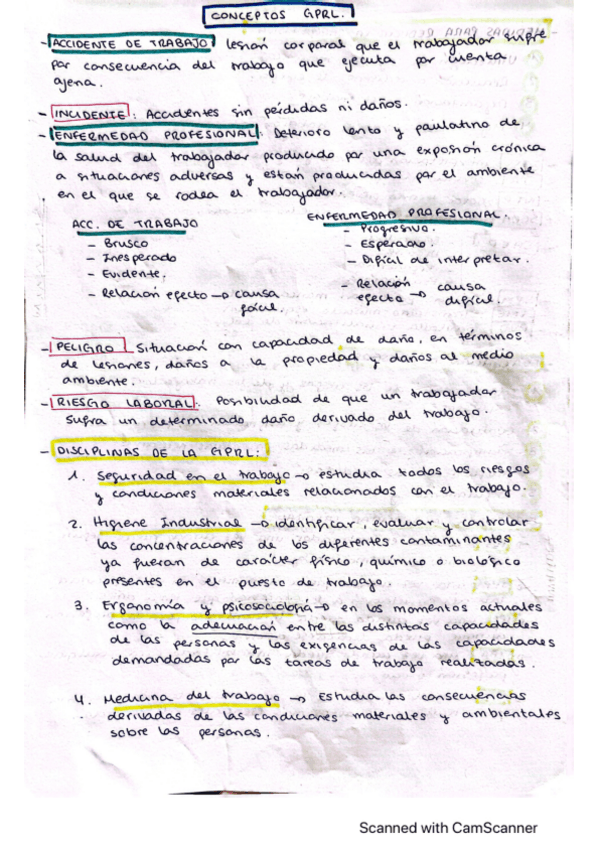 CONCEPTOS GPRL.
- ACCIDENTE DE TRABAJO lesión corporal que el trabajador sufre
por consecuencia del trabajo que ejecuta por cuenta
ajena.
- INCIDENTE: Accidentes sin pérdidas ni daños.
- ENFERMEDAD PROFESIONAL: Deterioro lento y paulatino de
la salud del trabajador producido por una exposión crónica
a situaciones adversas y están producidas por el ambiente
en el que se rodea el trabajador.
ACC. DE TRABAJO
- Brusco
- Inesperado
- Evidente.
- Relación efecto → causa
fácil.
ENFERMEDAD PROFESIONAL.
- Progresivo.
- Esperado.
- Difícil de interpretar.
- Relación
efecto → causa
difícil.
- PELIGRO Situación con capacidad de daño, en términos
de lesiones, daños a la propiedad y daños al medio
ambiente.
- RIESGO LABORAL: Posibilidad de que un trabajador
sufra un determinado daño derivado del trabajo.
- DISCIPLINAS DE LA GPRL:
1. Seguridad en el trabajo → estudia todos los riesgos
y condiciones materiales relacionados con el trabajo.
2. Higiene Industrial → identificar, evaluar y controlar
las concentraciones de los diferentes contaminantes
ya fueran de carácter físico, químico o biológico
presentes en el puesto de trabajo.
3. Ergonomía y psicosociología → en los momentos actuales
como la adecuación entre las distintas capacidades
de las personas y las exigencias de las capacidades
demandadas por las tareas de trabajo realizadas.
4. Medicina del trabajo → Estudia las consecuencias
derivadas de las condiciones materiales y ambientales
sobre las personas.
Scanned with CamScanner